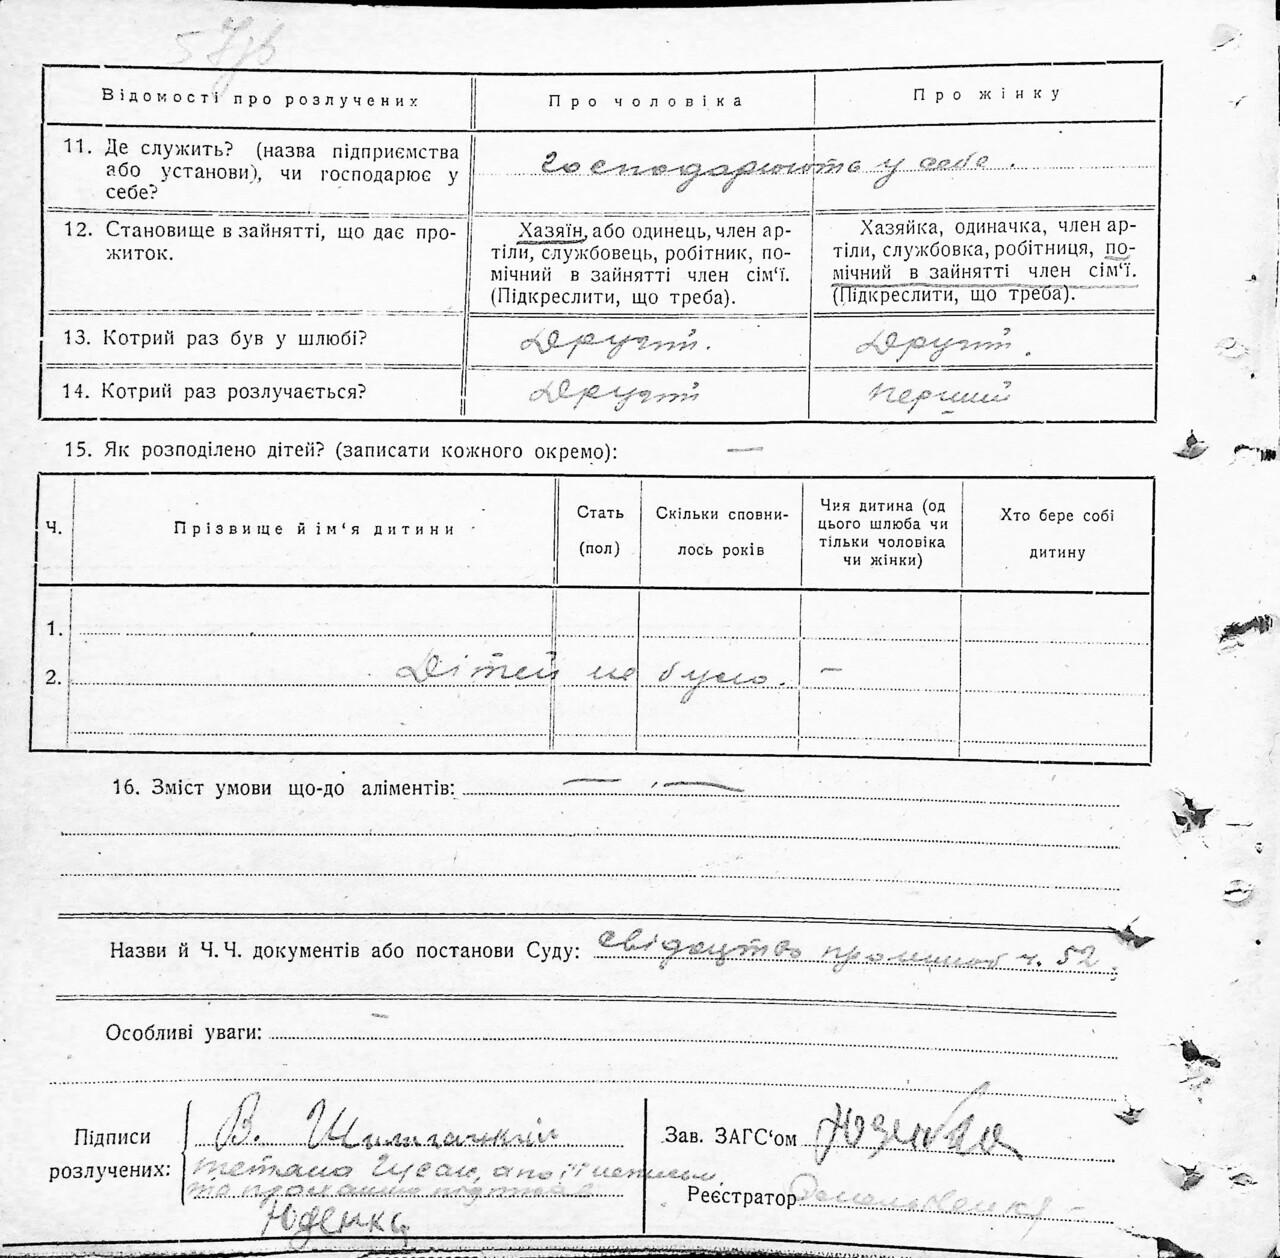 Відомості про розлучених
Про чоловіка
Про жінку
11. Де служить? (назва підприємства
або установи), чи господарює у
себе?
господарюють у себе.
12. Становище в зайнятті, що дає про-
житок.
Хазяїн, або одинець, член ар-
тіли, службовець, робітник, по-
мічний в зайнятті член сім'ї.
(Підкреслити, що треба).
Хазяйка, одиначка, член ар-
тіли, службовка, робітниця, по-
мічний в зайнятті член сім'ї.
(Підкреслити, що треба).
13. Котрий раз був у шлюбі?
Другий.
Другий.
14. Котрий раз розлучається?
Другий
перший
15. Як розподілено дітей? (записати кожного окремо): —
Ч.
Прізвище й ім'я дитини
Стать
(пол)
Скільки сповни-
лось років
Чия дитина (од
цього шлюба чи
тільки чоловіка
чи жінки)
Хто бере собі
дитину
1.
2. Дітей не було. —
16. Зміст умови що-до аліментів: — —
Назви й Ч.Ч. документів або постанови Суду: свідоцтво про шлюб ч. 52.
Особливі уваги: —
Підписи
розлучених:
В.
Тетяна Гусак, а по її неписьм.
та проханню підписав
Юденко
Зав. ЗАГС'ом
Реєстратор